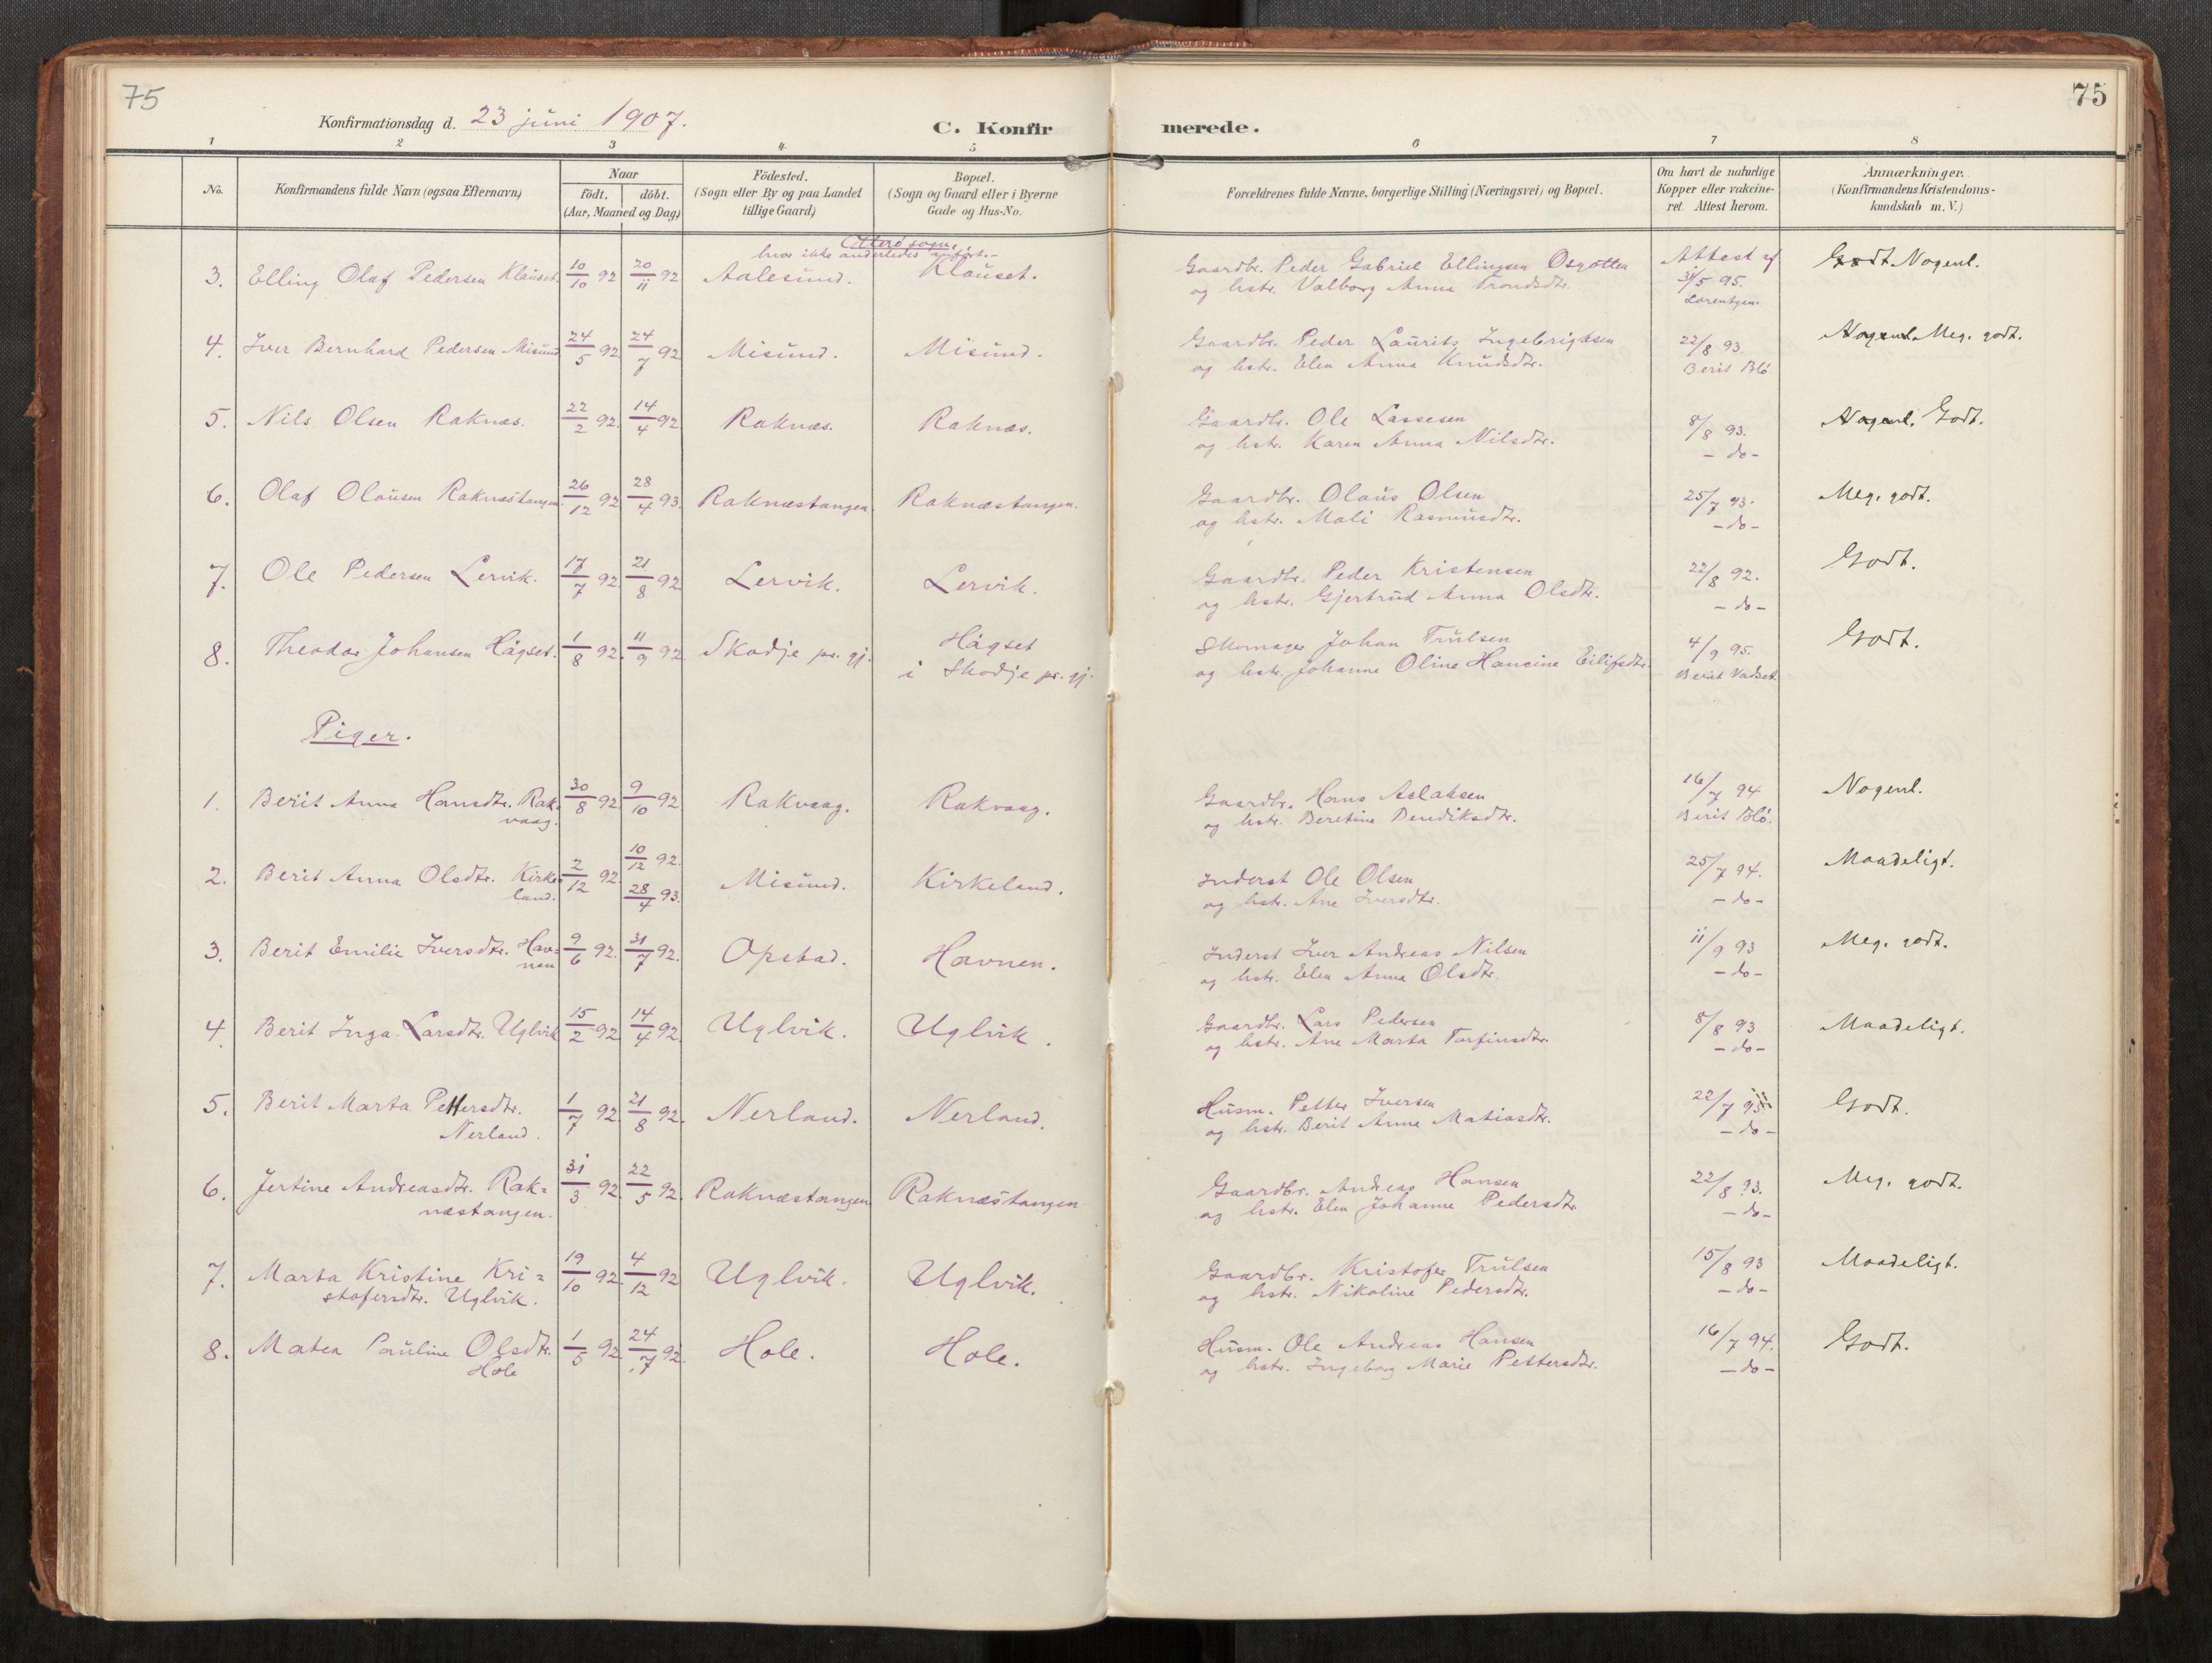 75
75
Konfirmationsdag d. 23 juni 1907.
C. Konfirmerede.
1 2 3 4 5 6 7 8
No.
Konfirmandens fulde Navn (ogsaa Efternavn)
Naar
födt. döbt.
(Aar, Maaned og Dag)
Födested.
(Sogn eller By og paa Landet
tillige Gaard)
Bopæl.
(Sogn og Gaard eller i Byerne
Gade og Hus-No.
Forældrenes fulde Navne, borgerlige Stilling (Næringsvei) og Bopæl.
Om havt de naturlige
Kopper eller vakcine-
ret. Attest herom.
Anmærkninger.
(Konfirmandens Kristendoms-
kundskab m. V.)
Otterö sogn,
hvor ikke anderledes anfört.-
3. Elling Olaf Pedersen Klauset. 10/10 92 20/11 92 Aalesund. Klauset.
Gaardbr. Peder Gabriel Ellingsen Osgotten
og hstr. Valborg Anna Trondsdtr.
Attest af
31/5 95.
Lorentzen.
Godt Nogenl.
4. Iver Bernhard Pedersen Misund 24/5 92 24/7 92 Misund. Misund.
Gaardbr. Peder Laurits Ingebrigtsen
og hstr. Elen Anna Knudsdtr.
22/8 93.
Berit Blö
Nogenl. Meg. godt.
5. Nils Olsen Raknæs. 22/2 92. 14/4 92 Raknæs. Raknæs.
Gaardbr. Ole Lassesen
og hstr. Karen Anna Nilsdtr.
8/8 93.
- do -
Nogenl. Godt.
6. Olaf Olausen Raknæstangen 26/12 92 28/4 93. Raknæstangen. Raknæstangen.
Gaardbr. Olaus Olsen
og hstr. Mali Rasmusdtr.
25/7 93.
- do -
Meg. godt.
7. Ole Pedersen Lervik. 17/7 92 21/8 92. Lervik. Lervik.
Gaardbr. Peder Kristensen
og hstr. Gjertrud Anna Olsdtr.
22/8 92.
- do -
Godt.
8. Theodor Johansen Hågset. 1/8 92. 11/9 92 Skodje pr. gj. Hågset
i Skodje pr. gj.
Skomager Johan Trulsen
og hstr. Johanne Oline Hansine Eilifsdtr.
4/9 95.
Berit Vadset
Godt.
Piger.
1. Berit Anna Hansdtr. Rak-
vaag. 30/8 92 9/10 92 Rakvaag. Rakvaag.
Gaardbr. Hans Aslaksen
og hstr. Beretine Bendiksdtr.
16/7 94
Berit Blö.
Nogenl.
2. Berit Anna Olsdtr. Kirke-
land. 2/12 92. 10/12 92.
28/4 93. Misund. Kirkeland.
Inderst Ole Olsen
og hstr. Ane Iversdtr.
25/7 94.
- do -
Maadeligt.
3. Berit Emilie Iversdtr. Hav=
nen 9/6 92. 31/7 92. Opstad. Havnen.
Inderst Iver Andreas Nilsen
og hstr. Elen Anna Olsdtr.
11/9 93
- do -
Meg. godt.
4. Berit Inga Larsdtr. Uglvik 15/2 92 14/4 92 Uglvik. Uglvik.
Gaardbr. Lars Pedersen
og hstr. Ane Marta Torfinsdtr.
8/8 93
- do -
Maadeligt.
5. Berit Marta Pettersdtr.
Nerland. 1/7 92. 21/8 92. Nerland. Nerland.
Husm. Petter Iversen
og hstr. Berit Anna Matiasdtr.
22/7 95
- do -
Godt.
6. Jertine Andreasdtr. Rak=
næstangen. 31/3 92. 22/5 92. Raknæstangen Raknæstangen
Gaardbr. Andreas Hansen
og hstr. Elen Johanne Pedersdtr.
22/8 93.
- do -
Meg. godt.
7. Marta Kristine Kri=
stofersdtr. Uglvik. 19/10 92. 4/12 92 Uglvik. Uglvik.
Gaardbr. Kristofer Trulsen
og hstr. Nikoline Pedersdtr.
15/8 93
- do -
Maadeligt.
8. Matea Pauline Olsdtr.
Hole 1/5 92. 24/7 92. Hole. Hole.
Husm. Ole Andreas Hansen
og hstr. Ingeborg Marie Pettersdtr.
16/7 94.
- do -
Godt.